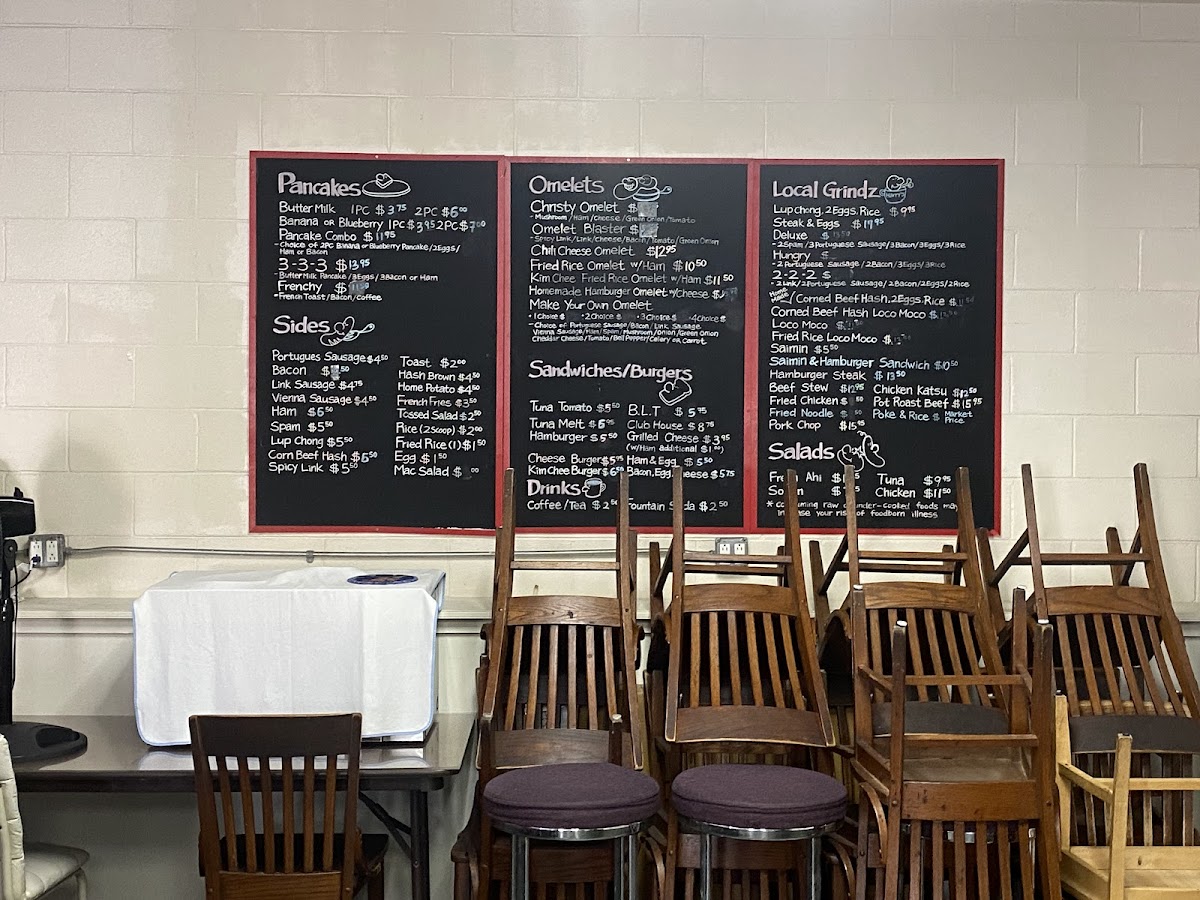 Pancakes
Butter Milk 1PC $3.75 2PC $6.00
Banana or Blueberry 1PC $3.95 2PC $7.00
Pancake Combo $11.95
- Choice of 2PC Banana or Blueberry Pancake/2Eggs/
Ham or Bacon
3-3-3 $13.95
- Butter Milk Pancake/3Eggs/3Bacon or Ham
Frenchy $
- French Toast/Bacon/Coffee
Sides
Portugues Sausage $4.50
Bacon $ .50
Link Sausage $4.75
Vienna Sausage $4.50
Ham $6.50
Spam $5.50
Lup Chong $5.50
Corn Beef Hash $6.50
Spicy Link $5.50
Toast $2.00
Hash Brown $4.50
Home Potato $4.50
French Fries $3.50
Tossed Salad $2.50
Rice (2 Scoop) $2.00
Fried Rice (1) $1.50
Egg $1.50
Mac Salad $ .00
Omelets
Christy Omelet $
- Mushroom/Ham/Cheese/Green Onion/Tomato
Omelet Blaster $
- Spicy Link/Link/Cheese/Bacon/Tomato/Green Onion
Chili Cheese Omelet $12.95
Fried Rice Omelet w/Ham $10.50
Kim Chee Fried Rice Omelet w/Ham $11.50
Homemade Hamburger Omelet w/Cheese $
Make Your Own Omelet
• 1 Choice $ • 2 Choice $ • 3 Choice $ • 4 Choice $
- Choice of Portuguese Sausage/Bacon/Link Sausage
Vienna Sausage/Ham/Spam/Mushroom/Onion/Green Onion
Cheddar Cheese/Tomato/Bell Pepper/Celary or Carrot
Sandwiches/Burgers
Tuna Tomato $5.50
Tuna Melt $6.95
Hamburger $5.50
Cheese Burger $5.95
Kim Chee Burger $6.50
B.L.T $5.75
Club House $8.75
Grilled Cheese $3.95
(w/Ham additional $1.00)
Ham & Egg $5.50
Bacon, Egg, Cheese $5.75
Drinks
Coffee/Tea $2. Fountain Soda $2.50
Local Grindz
Lup Chong, 2 Eggs, Rice $9.95
Steak & Eggs $17.95
Deluxe $
- 2Spam/3Portuguese Sausage/3Bacon/3Eggs/3Rice
Hungry $
- 2 Portuguese Sausage/2Bacon/3Eggs/3Rice
2-2-2 $
- 2 Link/2Portuguese Sausage/2Bacon/2Eggs/2Rice
Home Made/Corned Beef Hash, 2 Eggs, Rice $
Corned Beef Hash Loco Moco $
Loco Moco $
Fried Rice Loco Moco $
Saimin $5.50
Saimin & Hamburger Sandwich $10.50
Hamburger Steak $13.50
Beef Stew $12.95
Fried Chicken $
Fried Noodle $
Pork Chop $15.95
Chicken Katsu $12.50
Pot Roast Beef $15.95
Poke & Rice $ Market Price
Salads
Ahi $
Tuna $9.95
Chicken $11.50
* raw or under-cooked foods may
your risk of foodborn illness